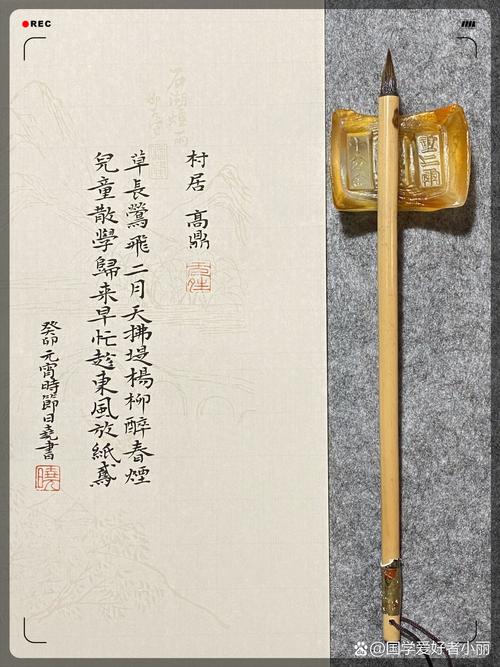 REC
村居 高鼎
草長鶯飛二月天拂堤楊柳醉春煙
兒童散學歸来早忙趁東風放紙鳶
癸卯元宵時節日堯書
曉
石湖煙雨
@国学爱好者小丽